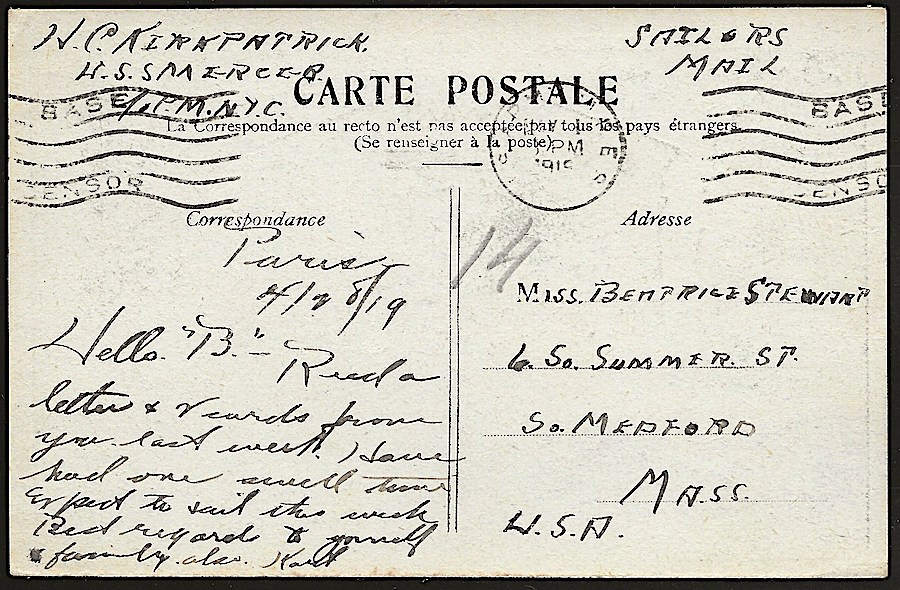 H. C. KIRKPATRICK
U.S.S MERCER
℅ P.M. N.Y.C.
SAILORS
MAIL
CARTE POSTALE
La Correspondance au recto n'est pas acceptée par tous les pays étrangers
(Se renseigner à la poste)
BASE
CENSOR
BASE
CENSO
PM
191
Correspondance
Paris
4/28/19
Hello "B." –
Recd a
letter & 2 cards from
you last week. Have
had one swell time
Expect to sail this week
Best regards to yourself
& family also.
14
Adresse
MISS. BEATRICE STEWART
6 SO. SUMMER. ST.
SO. MEDFORD
MASS.
U.S.A.